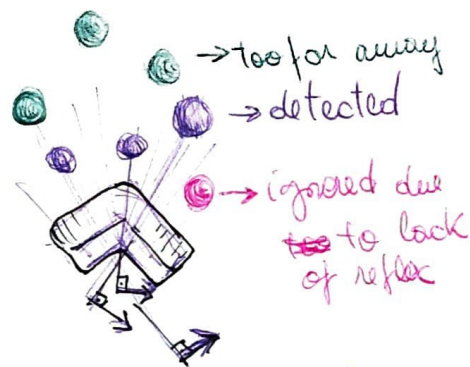 → too far away
→ detected
→ ignored due
to lack
of reflex